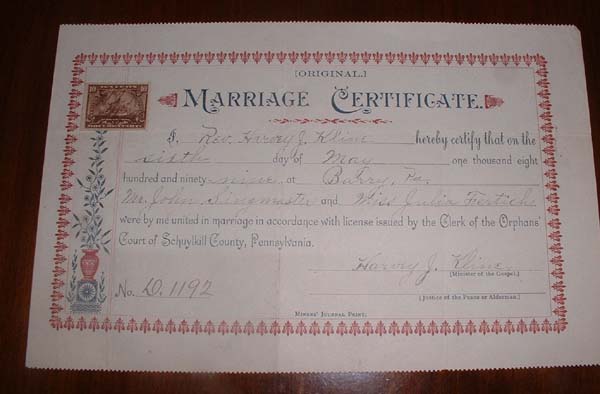 [ORIGINAL.]
MARRIAGE CERTIFICATE.
I, Rev. Harvey J. Kline hereby certify that on the
sixth day of May one thousand eight
hundred and ninety nine at Barry, Pa.
Mr. John and Miss Julia Fertich
were by me united in marriage in accordance with license issued by the Clerk of the Orphans'
Court of Schuylkill County, Pennsylvania.
Harvey J. Kline
[Minister of the Gospel.]
No. D. 1192
[Justice of the Peace or Alderman.]
MINERS' JOURNAL PRINT.